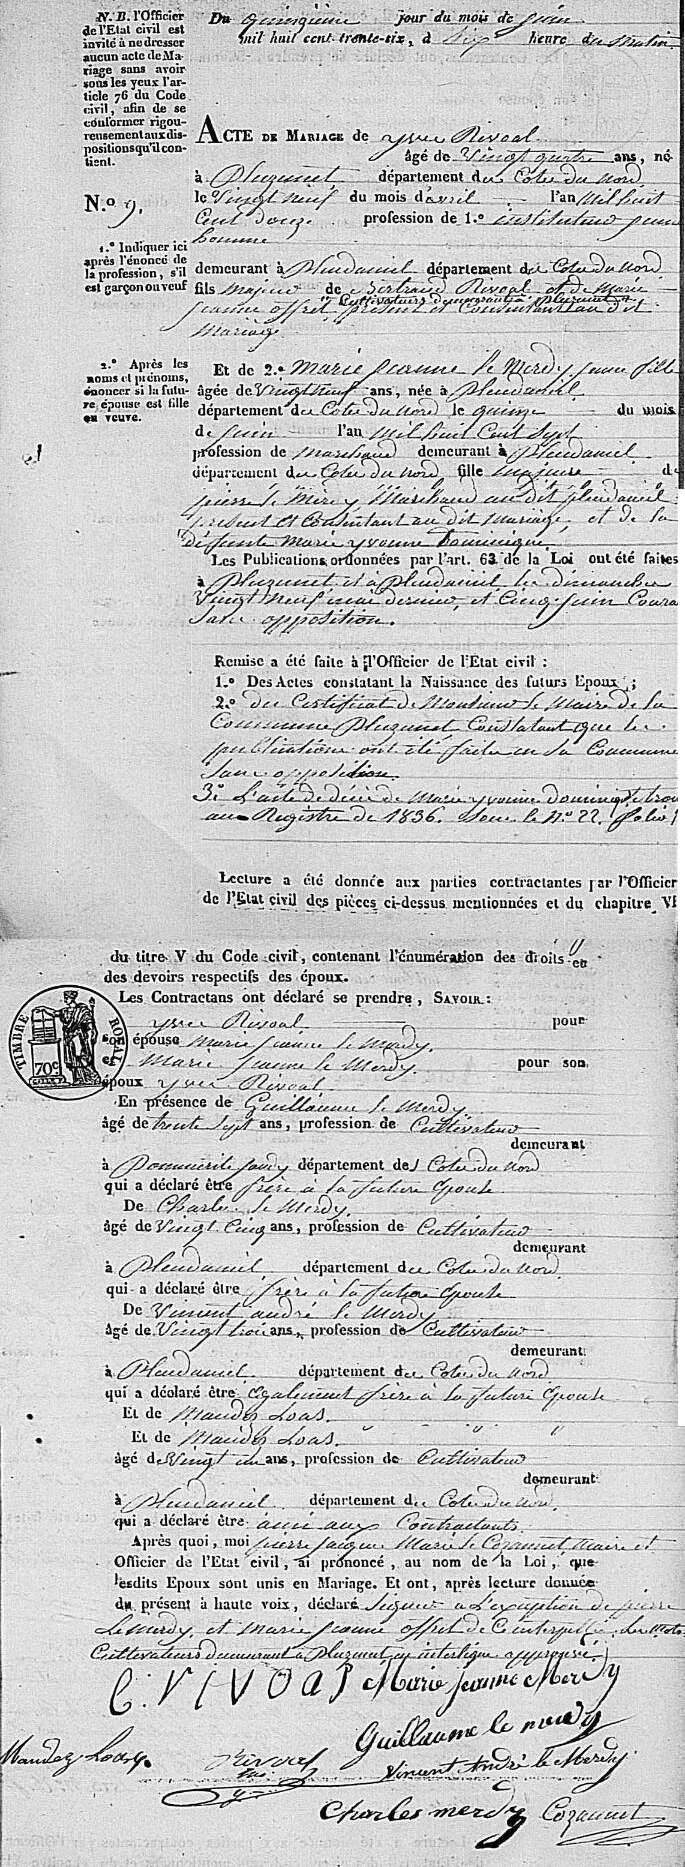 N. B. l'Officier
de l'Etat civil est
invité à ne dresser
aucun acte de Ma-
riage sans avoir
sous les yeux l'ar-
ticle 76 du Code
civil, afin de se
conformer rigou-
reusement aux dis-
positions qu'il con-
tient.
N.o 9.
1.o Indiquer ici
après l'énoncé de
la profession, s'il
est garçon ou veuf
2.o Après les
noms et prénoms,
énoncer si la futu-
re épouse est fille
ou veuve.
Du quinzième jour du mois de juin
mil huit cent trente-six, à dix heure du matin
ACTE DE MARIAGE de yves Rivoal
âgé de vingt quatre ans, né
à Pluzunet département des Cotes du Nord
le vingt neuf du mois d'avril l'an mil huit
cent douze profession de 1.o instituteur jeune
homme
demeurant à Pleudaniel département des Cotes du Nord
fils majeur de Bertrand Rivoal et de Marie
Cultivateurs demeurant à Pluzunet
jeanne offret, présent et consentant au dit
mariage
Et de 2.o Marie jeanne le Merdy jeune fille
âgée de vingt neuf ans, née à Pleudaniel
département des Cotes du Nord le quinze du mois
de juin l'an mil huit cent sept
profession de marchand demeurant à Pleudaniel
département des Cotes du Nord fille majeure de
pierre le Merdy Marchand au dit pleudaniel
présent et consentant au dit mariage, et de la
défunte Marie yvonne Dominique
Les Publications ordonnées par l'art. 63 de la Loi ont été faites
à Pluzunet et à Pleudaniel les dimanches
vingt neuf mai dernier, et cinq juin coura
sans opposition.
Remise a été faite à l'Officier de l'Etat civil :
1.o Des Actes constatant la Naissance des futurs Epoux ;
2.o du Certificat de Monsieur le Maire de la
Commune Pluzunet constatant que les
publications ont été faites en sa Commune
sans opposition.
3o L'acte de décès de Marie yvonne Dominique se trou
au Registre de 1836. sous le No 22. folio
Lecture a été donnée aux parties contractantes par l'Officier
de l'Etat civil des pièces ci-dessus mentionnées et du chapitre VI
du titre V du Code civil, contenant l'énumération des droits et
des devoirs respectifs des époux.
Les Contractans ont déclaré se prendre, SAVOIR :
TIMBRE ROYAL
70c
yves Rivoal pour
son épouse Marie jeanne le Merdy.
et Marie jeanne le Merdy. pour son
époux yves Rivoal
En présence de Guillaume le Merdy
âgé de trente sept ans, profession de Cultivateur
demeurant
à Pommerit jaudy département des Cotes du Nord
qui a déclaré être frère à la future épouse
De Charles le Merdy.
âgé de vingt cinq ans, profession de Cultivateur
demeurant
à Pleudaniel département des Cotes du Nord.
qui a déclaré être frère à la future épouse
De Vincent andré le Merdy
âgé de vingt trois ans, profession de Cultivateur
demeurant
à Pleudaniel. département des Cotes du Nord
qui a déclaré être également frère à la future épouse
Et de Maudez Loas.
Et de Maudez Loas.
âgé de vingt un ans, profession de Cultivateur
demeurant
à Pleudaniel département des Cotes du Nord.
qui a déclaré être ami aux Contractants.
Après quoi, moi pierre jacques Marie le Cozannet Maire et
Officier de l'Etat civil, ai prononcé, au nom de la Loi, que
lesdits Epoux sont unis en Mariage. Et ont, après lecture donnée
du présent à haute voix, déclaré signer a l'exception de pierre
Le merdy et marie jeanne offret de ce interpellés. les Mots
Cultivateurs demeurant à Pluzunet en interligne approuvé.
C. VIVOAS Marie jeanne Merdy
Guillaume le merdy
Maudez Loas. Rivoal Vincent André le Merdy
Charles merdy Cozannet